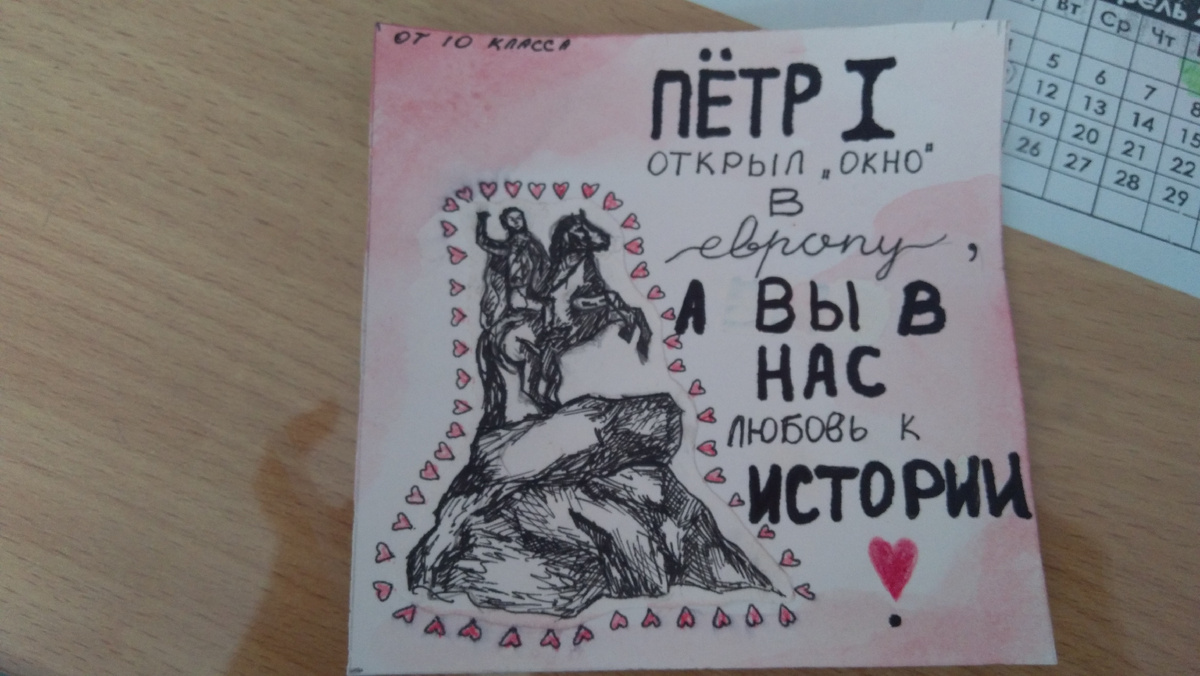 ОТ 10 КЛАССА
ПЁТР I
ОТКРЫЛ „ОКНО"
В
европу,
А ВЫ В
НАС
ЛЮБОВЬ К
ИСТОРИИ
Вт Ср Чт
5 6 7 8
12 13 14 15
19 20 21 22
26 27 28 29